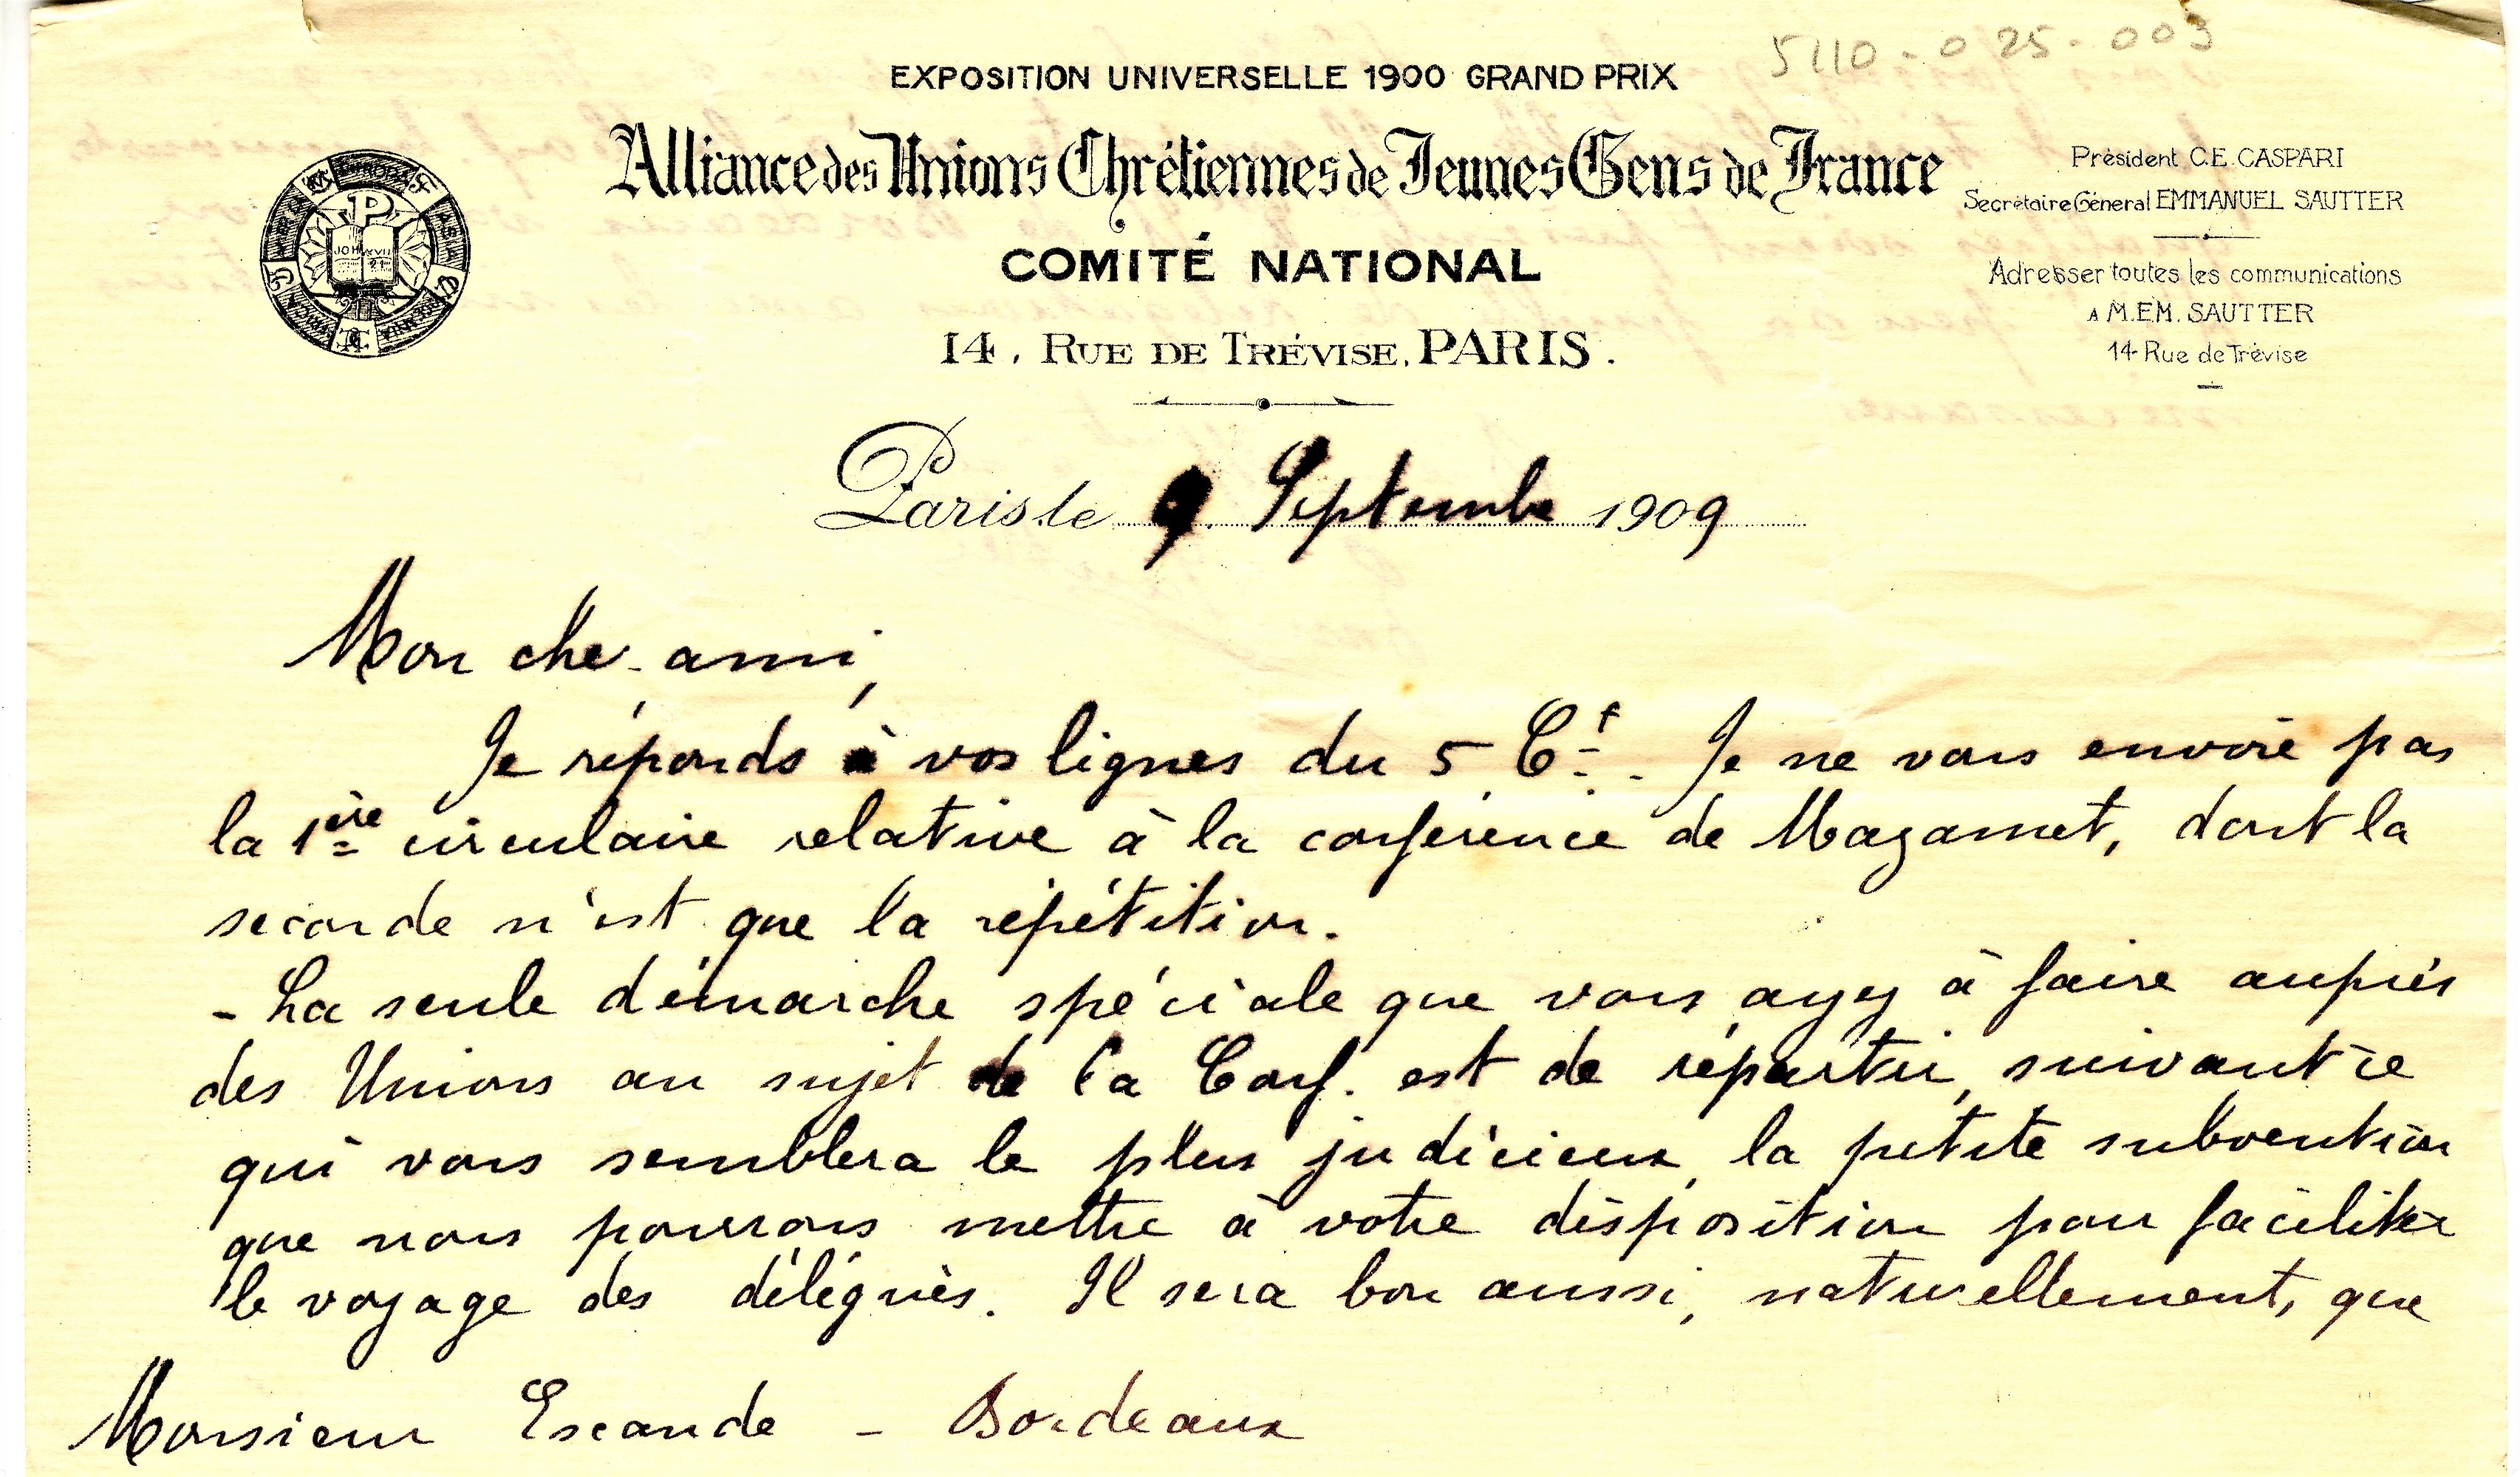 5110-025-003
EXPOSITION UNIVERSELLE 1900 GRAND PRIX
Alliance des Unions Chrétiennes de Jeunes Gens de France
COMITÉ NATIONAL
14, RUE DE TRÉVISE, PARIS.
Président C.E. CASPARI
Secrétaire Géneral EMMANUEL SAUTTER
Adresser toutes les communications
A M. EM. SAUTTER
14 Rue de Trévise
P
JOH XVII
21
Paris, le 9 Septembre 1909
Mon cher ami,
Je réponds à vos lignes du 5 Ct. Je ne vous envoie pas
la 1ère circulaire relative à la conférence de Mazamet, dont la
seconde n'est que la répétition.
- La seule démarche spéciale que vous ayez à faire auprès
des Unions au sujet de la Conf. est de répartir, suivant ce
qui vous semblera le plus judicieux, la petite subvention
que nous pourrons mettre à votre disposition pour faciliter
le voyage des délégués. Il sera bon aussi, naturellement, que
Monsieur Escande - Bordeaux